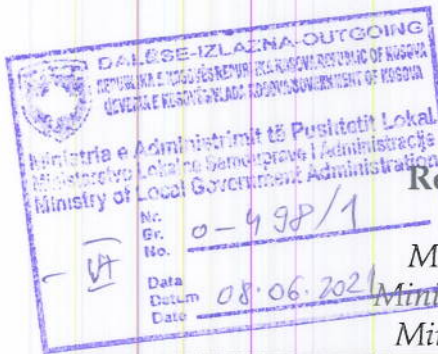 DALËSE-IZLAZNA-OUTGOING
REPUBLIKA E KOSOVËS REPUBLIKA KOSOVA REPUBLIC OF KOSOVA
QEVERIA E KOSOVËS VLADA KOSOVA GOVERNMENT OF KOSOVA
Ministria e Administrimit të Pushtetit Lokal
Ministarstvo Lokalne Samouprave i Administracije
Ministry of Local Government Administration
Nr.
Br.
No.
0-498/1
Data
Datum
Date
08.06.2021